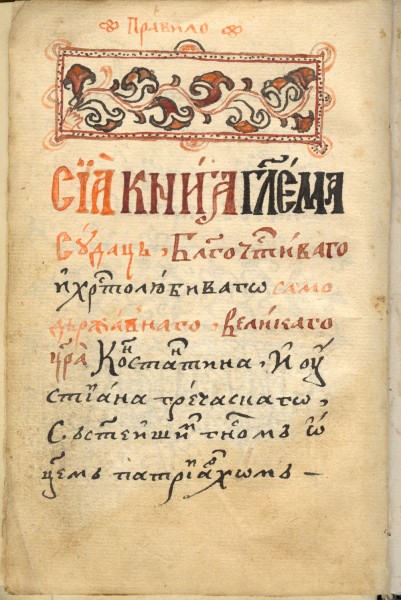 Правило
СЇѦ КНИГА ГЛЕ҃МА
Сꙋдацъ, Благоч҃тиваго
и хр҃толюбиваго само
държавнаго, великаго
цр҃ѧ Константина, И оу
стїана трѐчаснаго,
съ ст҃ейшимъ ѿ
цемъ патрїархомъ —